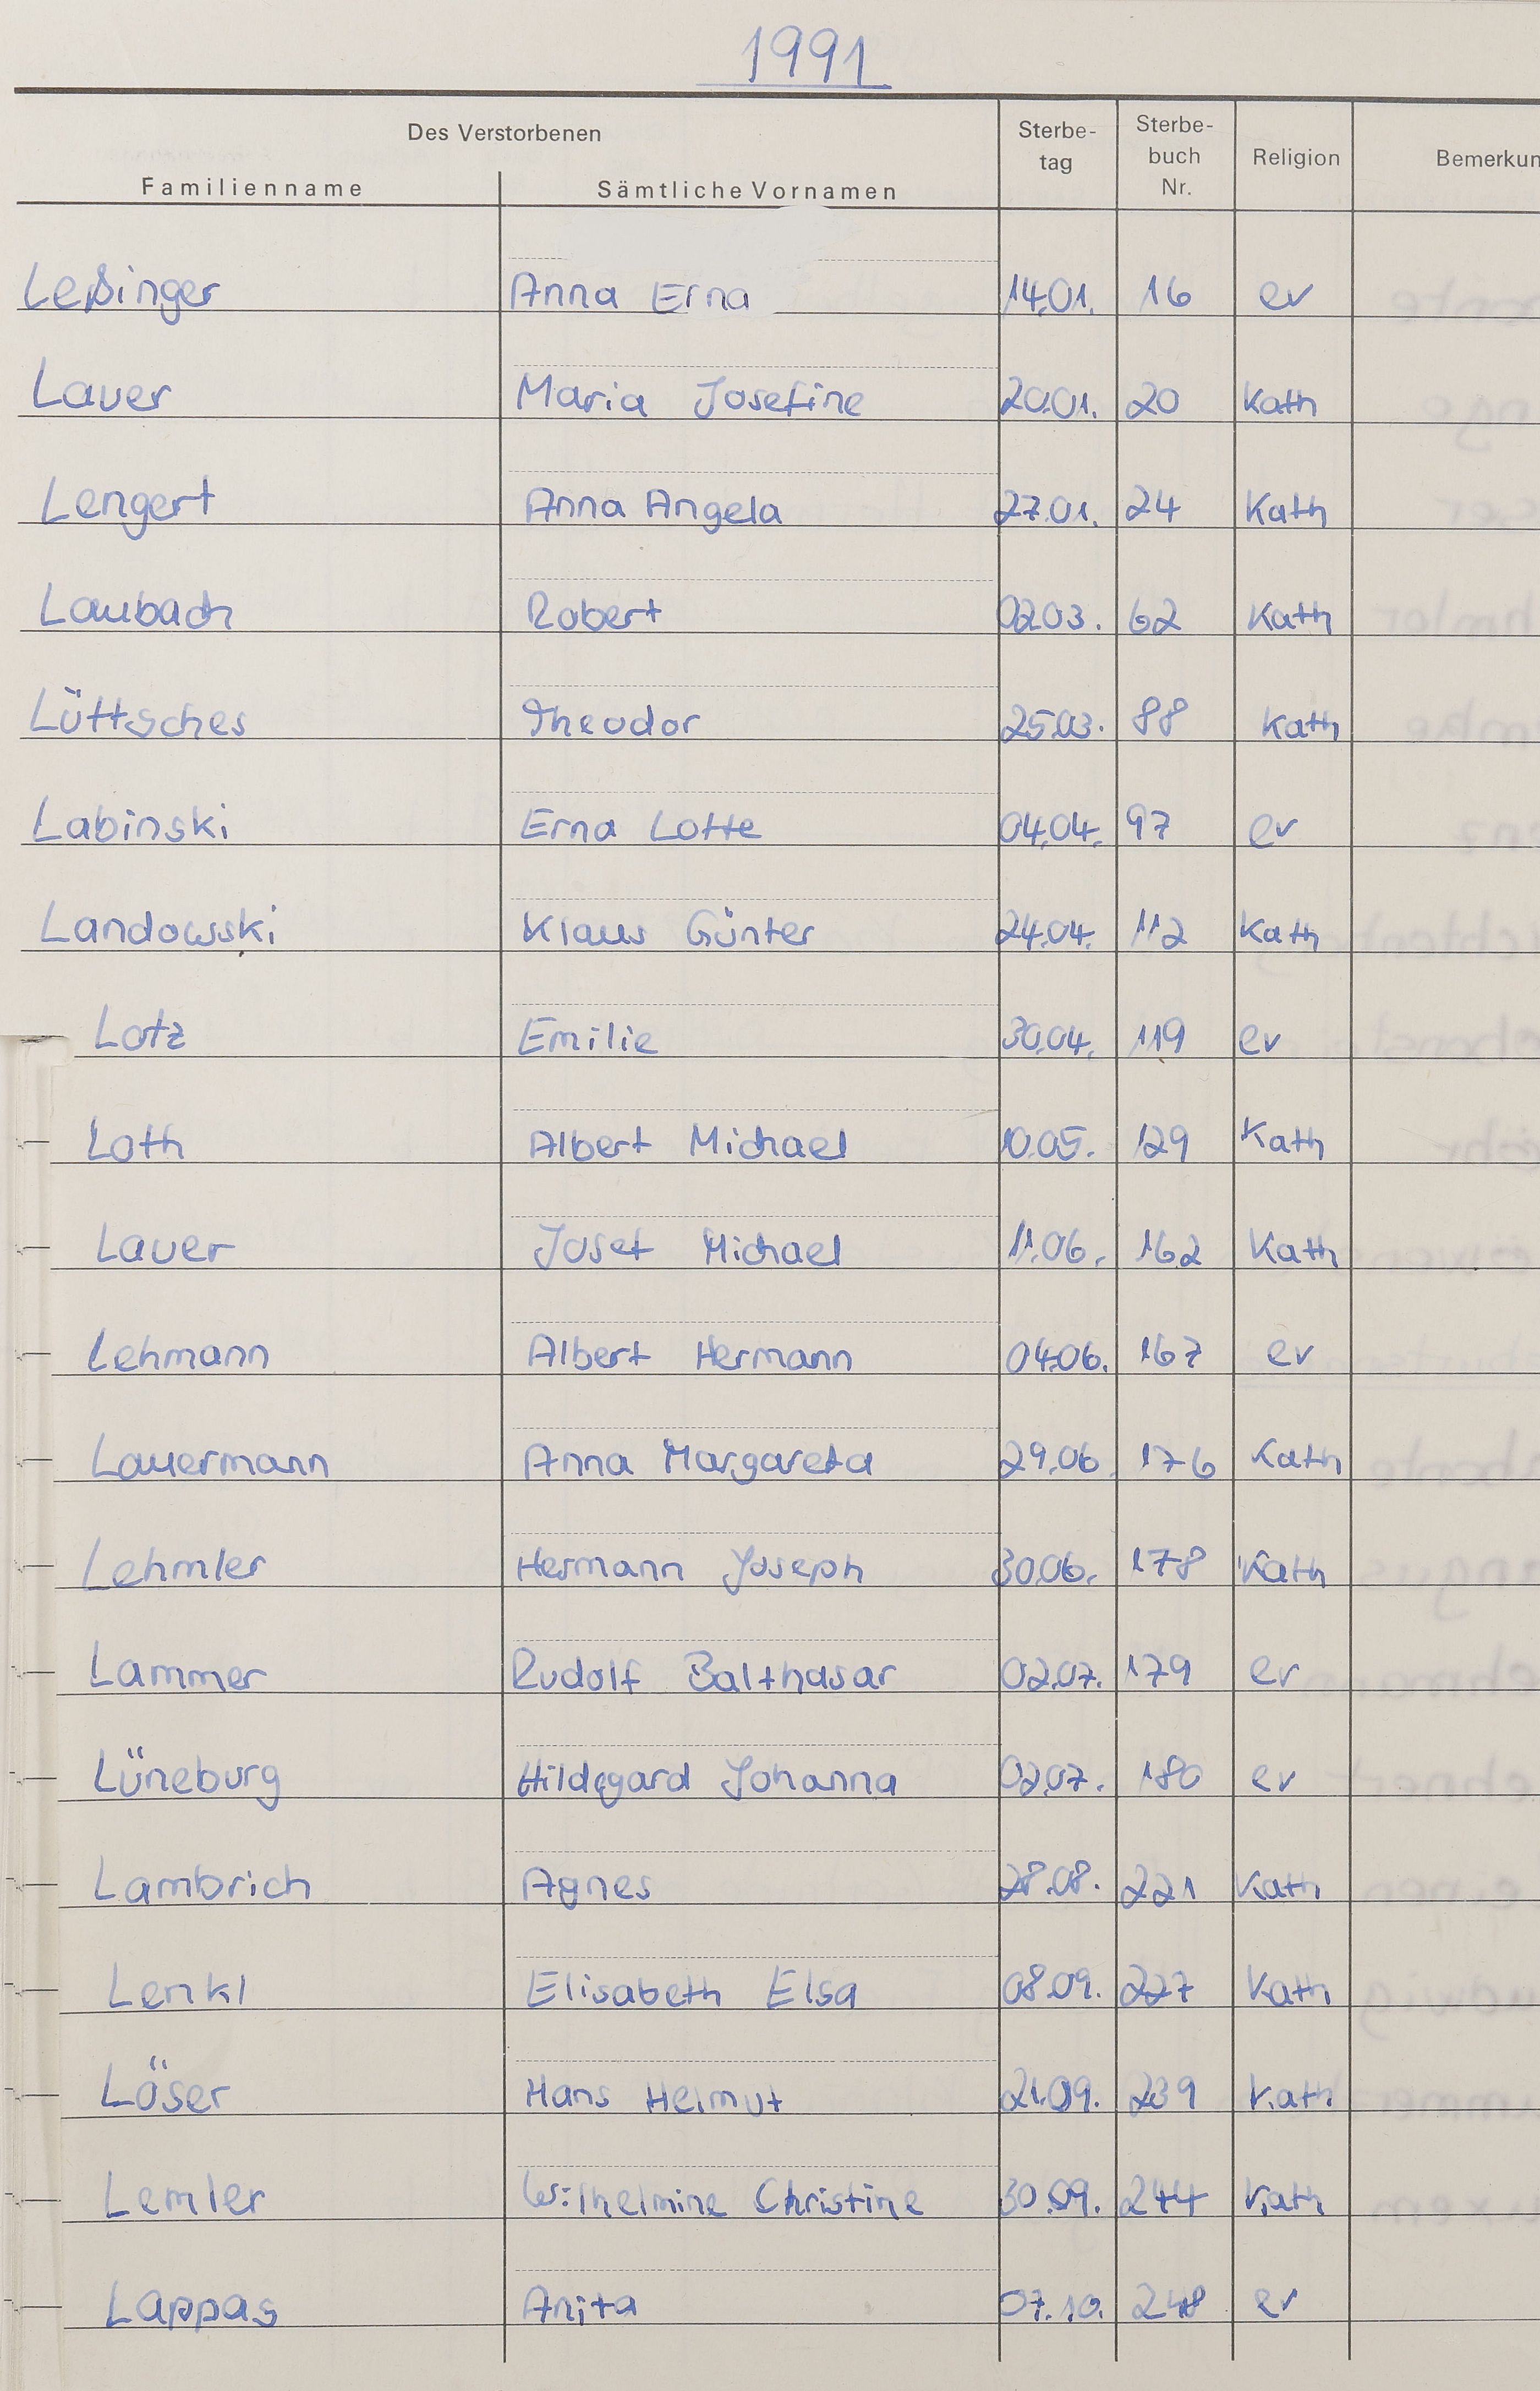 1991
Des Verstorbenen
Familienname Sämtliche Vornamen Sterbe-tag Sterbe-buch Nr. Religion Bemerkun
Leßinger Anna Erna 14.01. 16 ev
Lauer Maria Josefine 20.01. 20 Kath
Lengert Anna Angela 27.01. 24 Kath
Laubach Robert 02.03. 62 Kath
Lüttsches Theodor 25.03. 88 Kath
Labinski Erna Lotte 04.04. 97 ev
Landowski Klaus Günter 24.04. 112 Kath
Lotz Emilie 30.04. 119 ev
Loth Albert Michael 10.05. 129 Kath
Lauer Josef Michael 11.06. 162 Kath
Lehmann Albert Hermann 04.06. 167 ev
Lauermann Anna Margareta 29.06 176 Kath
Lehmler Hermann Joseph 30.06. 178 Kath
Lammer Rudolf Balthasar 02.07. 179 ev
Lüneburg Hildegard Johanna 02.07. 180 ev
Lambrich Agnes 28.08. 221 Kath
Lenkl Elisabeth Elsa 08.09. 227 Kath
Löser Hans Helmut 21.09. 239 Kath.
Lemler Wilhelmine Christine 30.09. 244 Kath
Lappas Anita 07.10. 248 ev